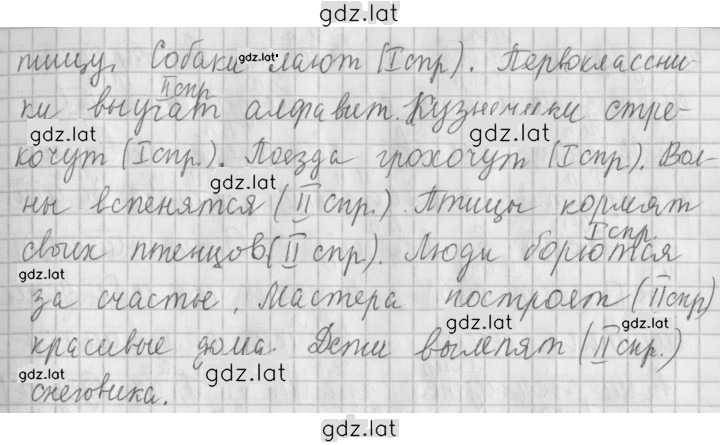 gdz.lat
птицу. Собаки gdz.lat лают (I спр.). Первоклассни-
II спр
ки выучат алфавит. Кузнечики стре-
gdz.lat gdz.lat
кочут (I спр.). Поезда грохочут (I спр.). Вол-
gdz.lat
ны вспенятся (II спр.). Птицы кормят
I спр
своих птенцов (II спр.). Люди борются
gdz.lat
за счастье. Мастера построят (II спр)
gdz.lat gdz.lat
красивые дома. Дети вылепят (II спр.)
gdz.lat gdz.lat
снеговика.
gdz.lat